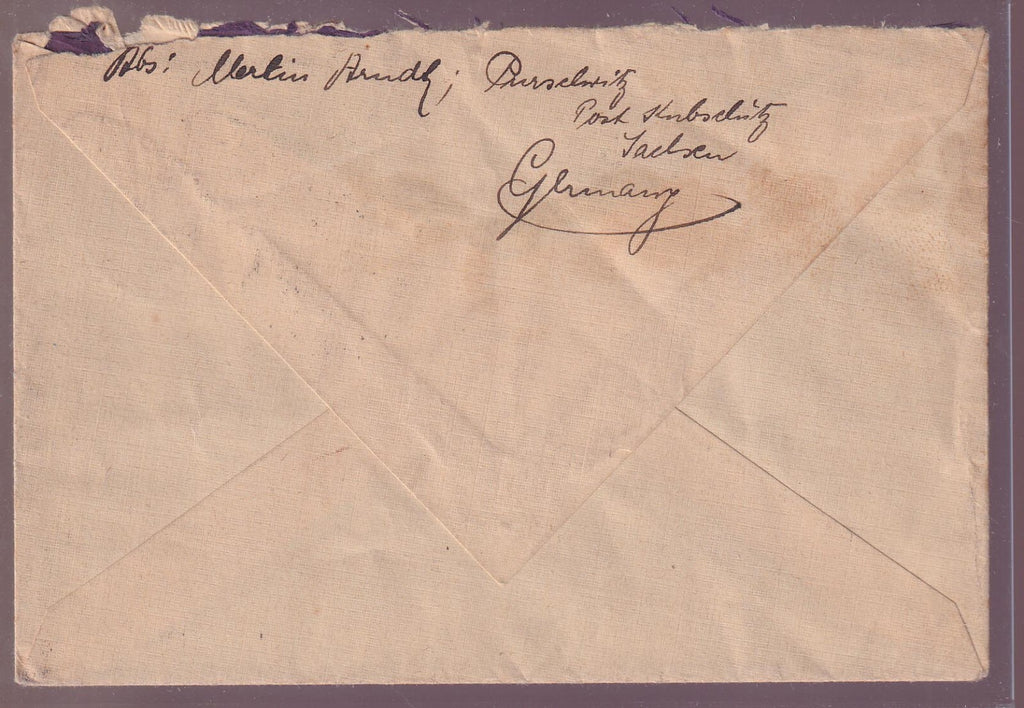 Abs: Martin Arndt; Purschwitz
Post Kubschütz
Sachsen
Germany